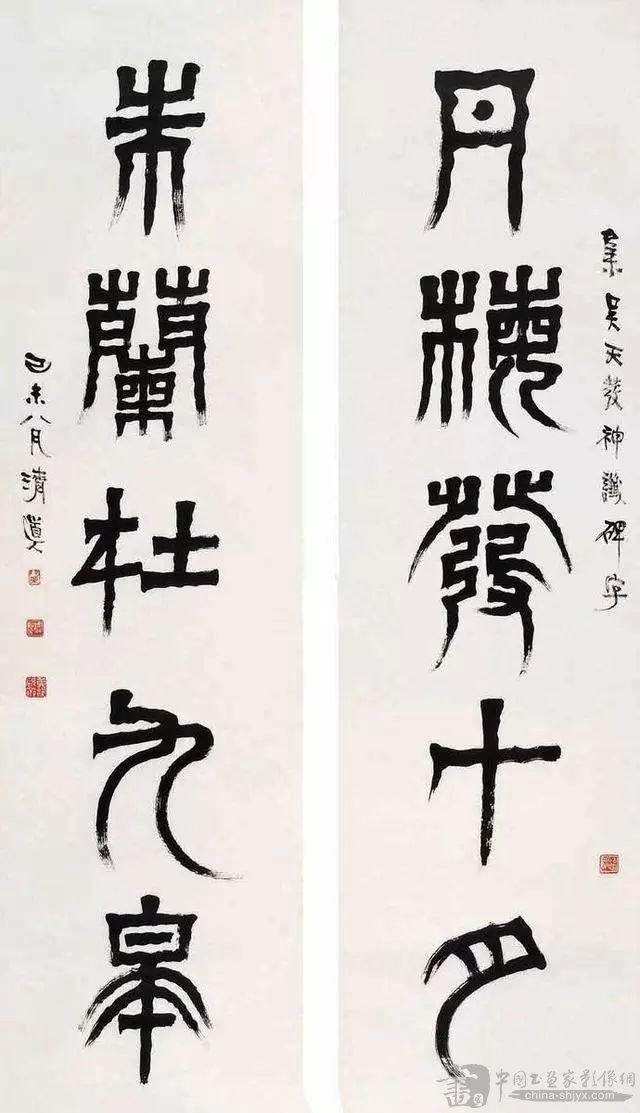 丹梅發十月
集吴天發神讖碑字
朱蘭杜九皋
己未八月清道人
中國书画家影像網
china-shjyx.com